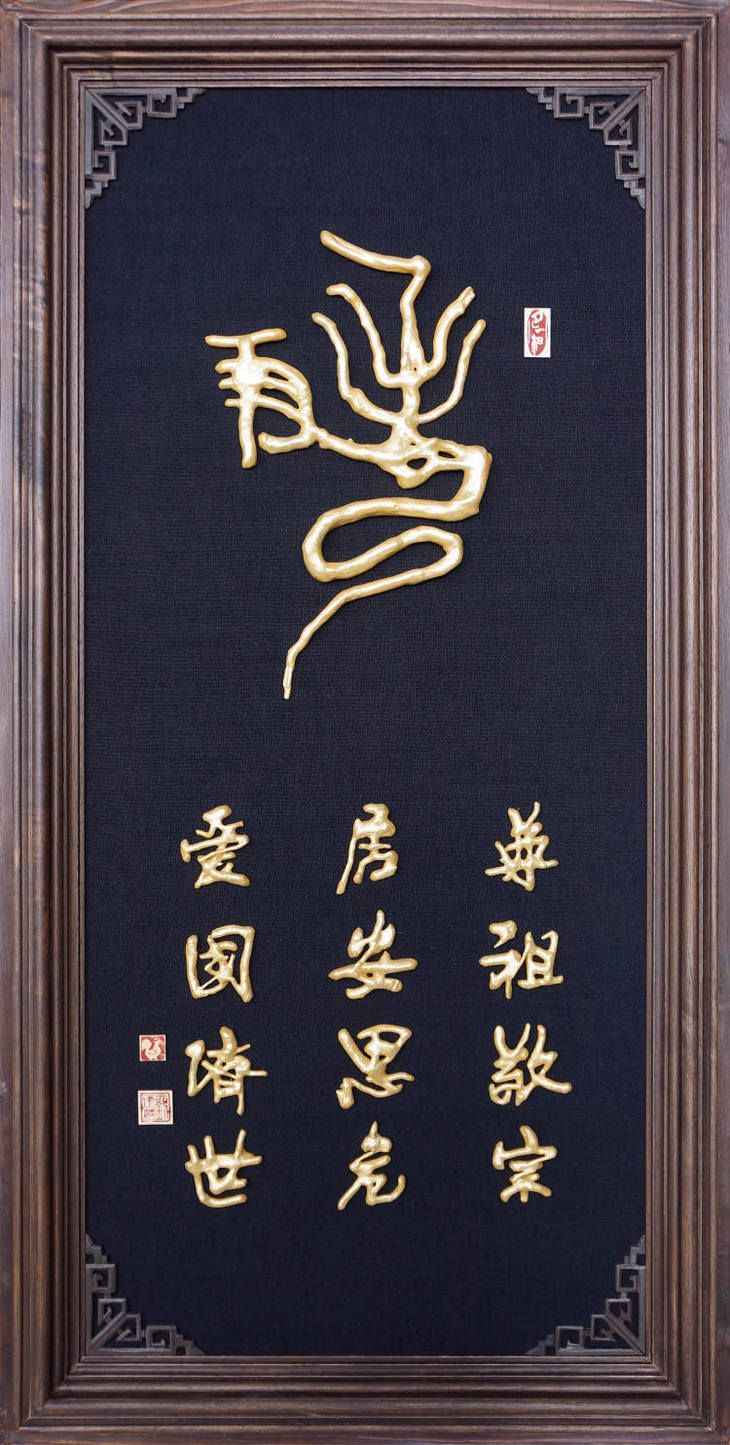 尊祖敬宗
居安思危
愛國濟世